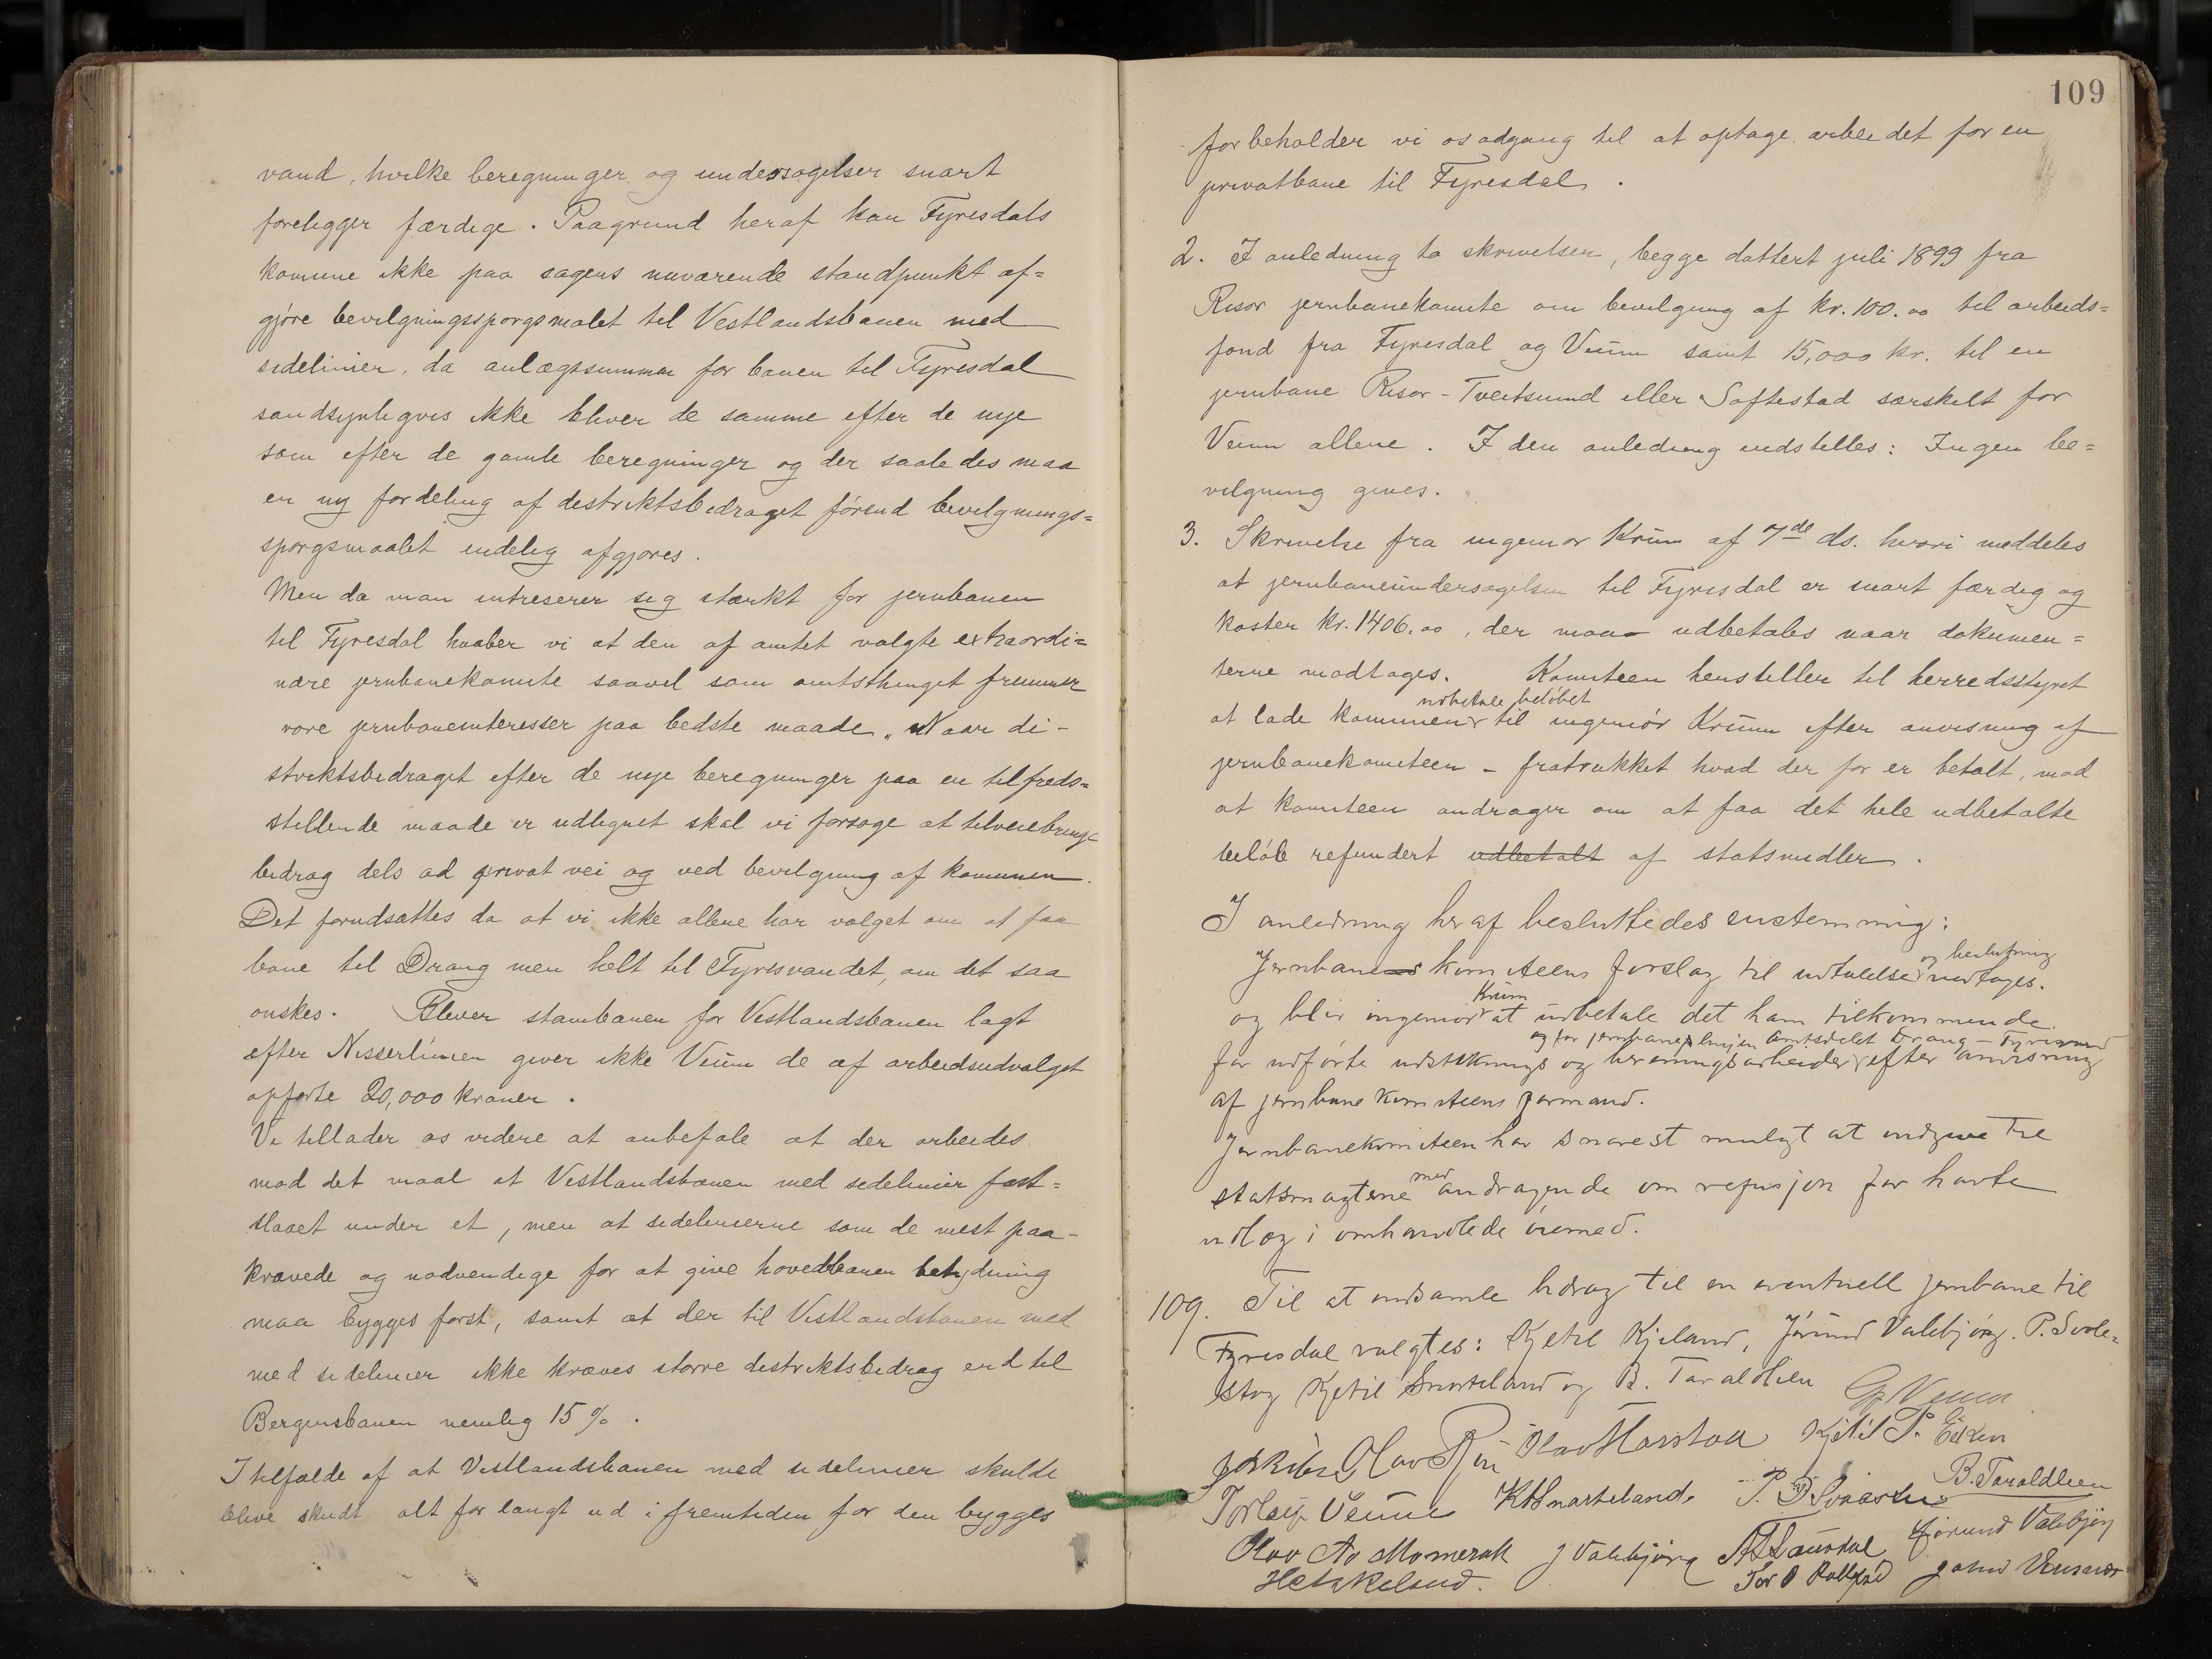 vand, hvilke beregninger og undersøgelser snart
foreligger færdige. Paagrund heraf kan Fyresdals
komune ikke paa sagens nuværende standpunkt af=
gjøre bevilgningsspørgsmalet til Vestlandsbanen med
sidelinier, da anlægssummen for banen til Fyresdal
sandsynligvis ikke bliver de samme efter de nye
som efter de gamle beregninger og der saaledes maa
en ny fordeling af distriktsbidraget førend bevilgnings=
spørgsmaalet endelig afgjøres.
Men da man intreserer sig stærkt for jernbanen
til Fyresdal haaber vi at den af amtet valgte extraordi=
nære jernbanekomite saavel som amtsthinget fremmer
vore jernbaneinteresser paa bedste maade. Naar di-
striktsbidraget efter de nye beregninger paa en tilfreds=
stillende maade er udlignet skal vi forsøge at tilveiebringe
bidrag dels ad privat vei og ved bevilgning af komunen.
Det forudsættes da at vi ikke allene har valget om at faa
bane til Drang men helt til Fyresvandet, om det saa
ønskes. Bliver stambanen for Vestlandsbanen lagt
efter Nisserlinien giver ikke Veum de af arbeidsudvalget
opførte 20,000 kroner.
Vi tillader os videre at anbefale at der arbeides
mod det maal at Vestlandsbanen med sidelinier fast=
slaaet under et, men at sidelinierne som de mest paa-
krævede og nødvendige for at give hovedbanen betydning
maa bygges først, samt at der til Vestlandsbanen med
med sidelinier ikke kræves større distriktsbidrag end til
Bergensbanen nemlig 15 %.
I tilfælde af at Vestlandsbanen med sidelinier skulde
blive skudt alt for langt ud i fremtiden før den bygges
109
forbeholder vi os adgang til at optage arbeidet for en
privatbane til Fyresdal.
2. I anledning to skrivelser, begge dattert juli 1899 fra
Risør jernbanekomite om bevilgning af kr. 100.00 til arbeids=
fond fra Fyresdal og Veum samt 15,000 kr. til en
jernbane Risør - Tveitsund eller Søftestad særskilt for
Veum allene. I den anledning indstilles: Ingen be=
vilgning gives.
3. Skrivelse fra ingeniør Krūm af 7de ds. hvori meddeles
at jernbaneundersøgelsen til Fyresdal er snart færdig og
koster kr. 1406.00, der maa udbetales naar dokumen=
terne modtages. Komiteen henstiller til herredsstyret
udbetale beløbet
at lade kommunen til ingeniør Krūm efter anvisning af
jernbanekomiteen - fratrukket hvad der før er betalt, mod
at komiteen andrager om at faa det hele udbetalte
beløb refundert udbetalt af statsmidler.
I anledning heraf besluttedes enstemmig:
og beslutning
Jernbanekomiteens forslag til udtalelse vedtages.
Krūm
og blir ingeniør at udbetale det ham tilkommende
og for jernbanelinjen Amtsdelet Drang - Fyresvand
for udførte udstiknings og beregningsarbeider efter anvisning
af jernbanekomiteens formand.
Jernbanekomiteen har snarest muligt at indgive til
med
statsmagterne andragende om refusjon for havte
udlæg i omhandlede øiemed.
109. Til at indsamle bidrag til en eventuell jernbane til
Fyresdal valgtes: Kjetil Kjeland, Jørund Valebjørg. P. Svole=
stog Kjetil Snarteland og B. Taraldlien
G Veum
Olav Kjetil P. Eiken
Torleif Veum KHSnarteland. B. Taraldlien
Olav Av Momrak J Valebjørg Jørund Valebjørg
H Aakeland. Tor O John